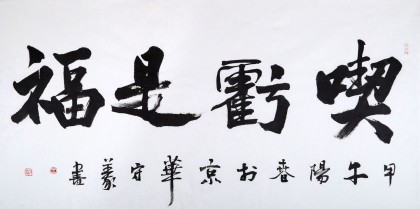 喫虧是福
甲午陽春於京華守義書